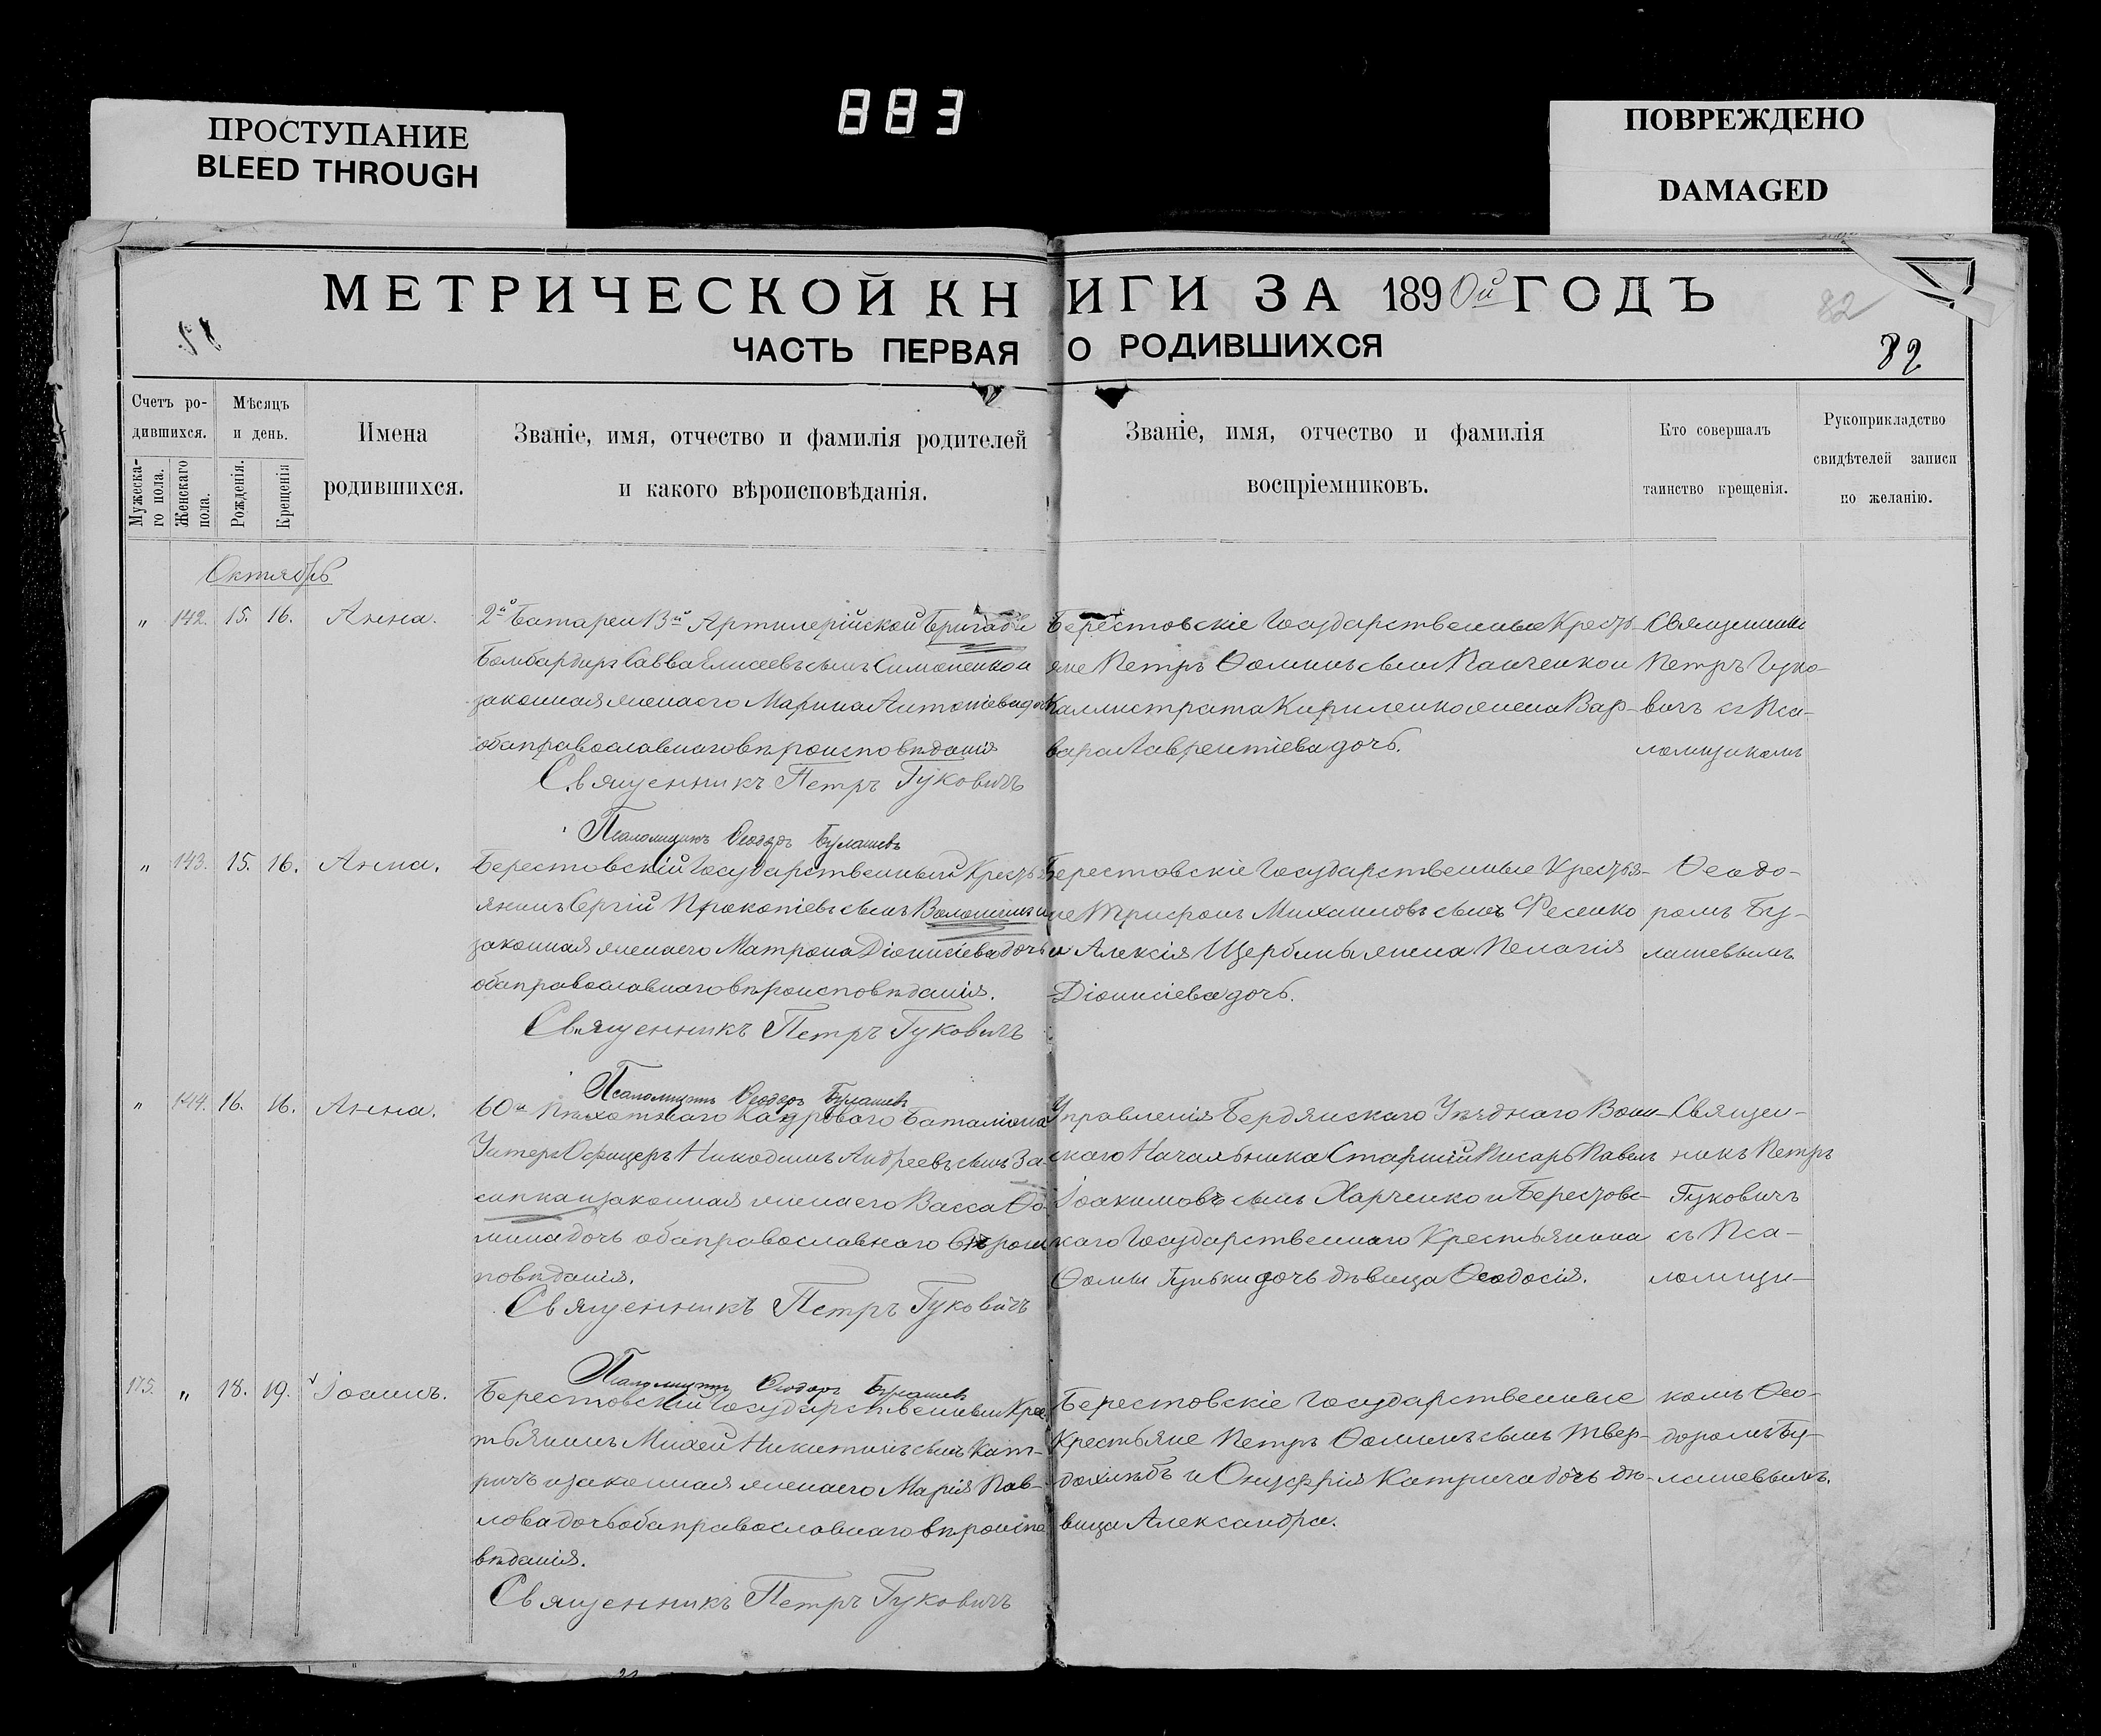 883
ПРОСТУПАНИЕ
BLEED THROUGH
ПОВРЕЖДЕНО
DAMAGED
МЕТРИЧЕСКОЙ КНИГИ ЗА 1890й ГОДЪ
ЧАСТЬ ПЕРВАЯ О РОДИВШИХСЯ
82
82
Счетъ ро-
дившихся.
Мужеска-
го пола.
Женскаго
пола.
Мѣсяцъ
и день.
Рожденія.
Крещенія
Имена
родившихся.
Званіе, имя, отчество и фамилія родителей
и какого вѣроисповѣданія.
Званіе, имя, отчество и фамилія
воспріемниковъ.
Кто совершалъ
таинство крещенія.
Рукоприкладство
свидѣтелей записи
по желанію.
Октябрь
" 142. 15. 16. Анна.
2й Батареи 13й Артилерійской Бригады
Бомбардиръ Савва Елисеевъ сынъ Симоненко и
законная жена его Марина Антоніева дочь
оба православнаго вѣроисповѣданія
Священникъ Петръ Гуковичъ
Псаломщикъ Ѳеодоръ Булашевъ
Берестовскіе Государственные Кресть-
яне Петръ Ѳоминъ сынъ Панченко и
Каллистрата Кириленко жена Вар-
вара Лаврентіева дочь.
Священникъ
Петръ Гуко-
вичъ съ Пса-
ломщикомъ
" 143. 15. 16. Анна.
Берестовскій Государственный Кресть-
янинъ Сергій Прокопіевъ сынъ Волошинъ и
законная жена его Матрона Діонисіева дочь
оба православнаго вѣроисповѣданія.
Священникъ Петръ Гуковичъ
Псаломщикъ Ѳеодоръ Булашевъ
Берестовскіе Государственные Крестья-
не Трифонъ Михаиловъ сынъ Фесенко
и Алексія Щербины жена Пелагія
Діонисіева дочь.
Ѳеодо-
ромъ Бу-
лашевымъ
" 144. 16. 16. Анна.
60й Пѣхотнаго Кадроваго Баталіона
Унтеръ Офицеръ Никодимъ Андреевъ сынъ За-
сипка и законная жена его Васса Ѳо-
мина дочь оба православнаго вѣроис
повѣданія.
Священникъ Петръ Гуковичъ
Псаломщикъ Ѳеодоръ Булашевъ
Управленія Бердянскаго Уѣзднаго Воин-
скаго Начальника Старшій Писарь Павелъ
Іоакимовъ сынъ Харченко и Берестовс-
каго Государственнаго Крестьянина
Ѳомы дочь дѣвица Ѳеодосія.
Священ-
никъ Петръ
Гуковичъ
съ Пса-
ломщи-
175. " 18. 19. Іоаннъ.
Берестовскій Государственный Крес-
тьянинъ Михей Никитинъ сынъ Кат-
ричъ и законная жена его Марія Пав-
лова дочь оба православнаго вѣроиспо
вѣданія.
Священникъ Петръ Гуковичъ
Берестовскіе Государственные
Крестьяне Петръ Ѳоминъ сынъ Твер-
дохлѣбъ и Онуфрія Катрича дочь дѣ-
вица Александра.
комъ Ѳео-
доромъ Бу-
лашевымъ.